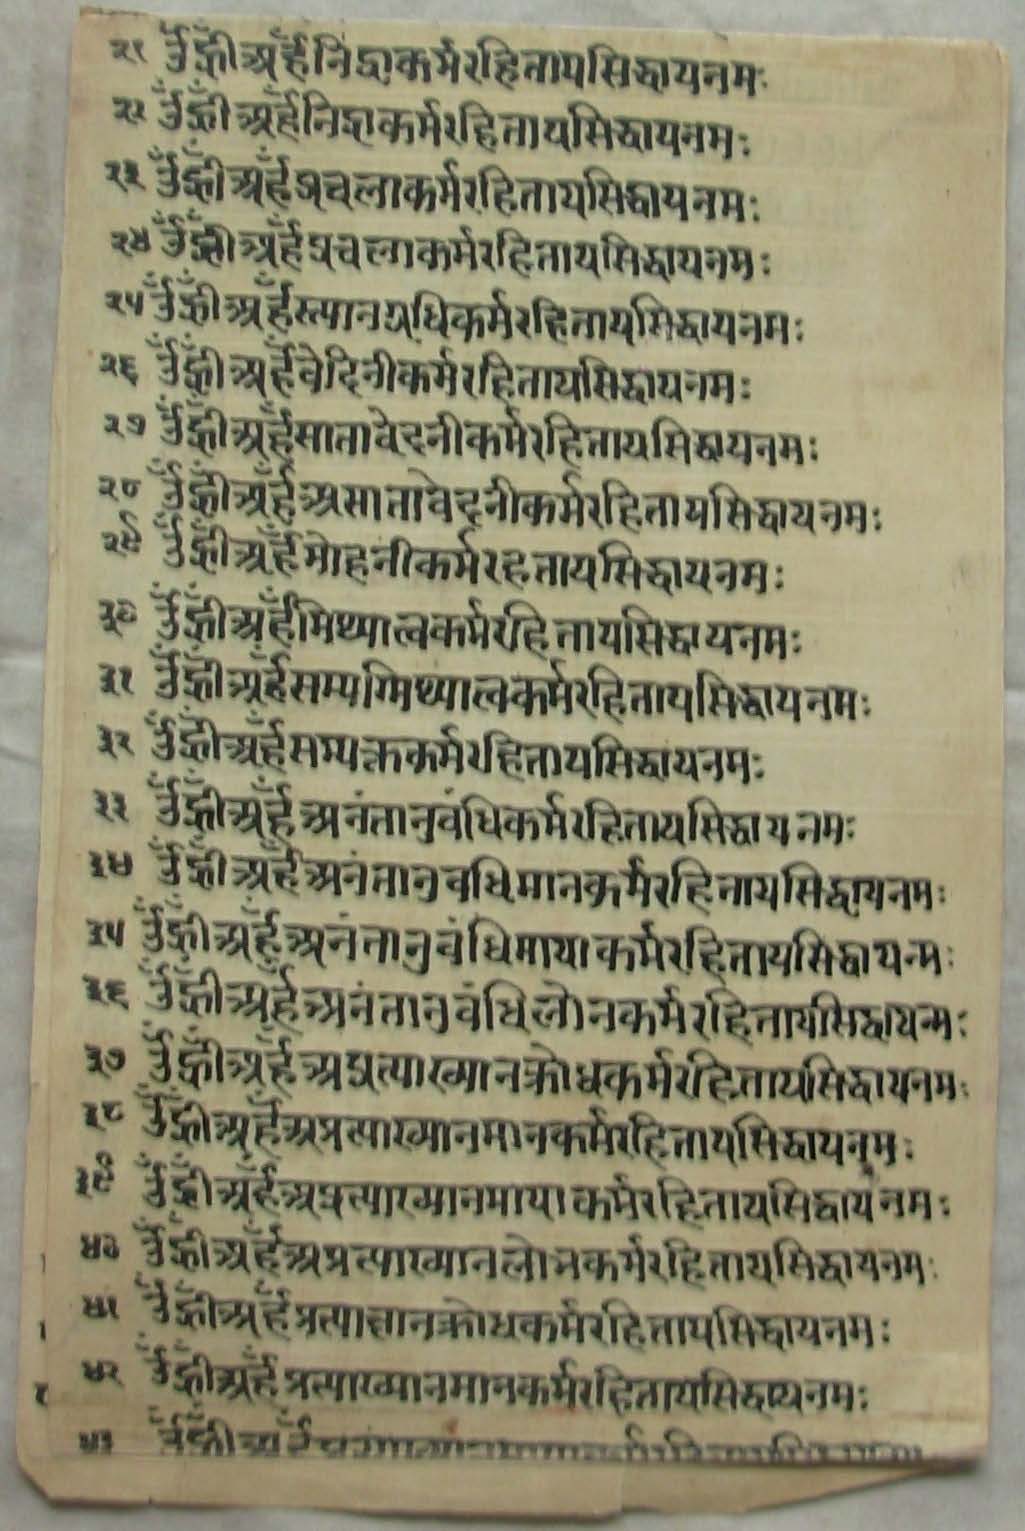 २१ ॐ ह्रीँ अर्हँ निद्राकर्मरहितायसिद्धायनमः
२२ ॐ ह्रीँ अर्हँ निद्राकर्मरहितायसिद्धायनमः
२३ ॐ ह्रीँ अर्हँ प्रचलाकर्मरहितायसिद्धायनमः
२४ ॐ ह्रीँ अर्हँ प्रचलाकर्मरहितायसिद्धायनमः
२५ ॐ ह्रीँ अर्हँ स्त्यानग्रधिकर्मरहितायसिद्धायनमः
२६ ॐ ह्रीँ अर्हँ वेदिनीकर्मरहितायसिद्धायनमः
२७ ॐ ह्रीँ अर्हँ सातावेदनीकर्मरहितायसिद्धायनमः
२८ ॐ ह्रीँ अर्हँ असातावेदनीकर्मरहितायसिद्धायनमः
२९ ॐ ह्रीँ अर्हँ मोहनीकर्मरहतायसिद्धायनमः
३० ॐ ह्रीँ अर्हँ मिथ्यात्वकर्मरहितायसिद्धायनमः
३१ ॐ ह्रीँ अर्हँ सम्यग्मिथ्यात्वकर्मरहितायसिद्धायनमः
३२ ॐ ह्रीँ अर्हँ सम्यक्तकर्मरहितायसिद्धायनमः
३३ ॐ ह्रीँ अर्हँ अनंतानुवंधिकर्मरहितायसिद्धायनमः
३४ ॐ ह्रीँ अर्हँ अनंतानुवधिमानकर्मरहितायसिद्धायनमः
३५ ॐ ह्रीँ अर्हँ अनंतानुवंधिमायाकर्मरहितायसिद्धायन्मः
३६ ॐ ह्रीँ अर्हँ अनंतानुवंधिलोनकर्मरहितायसिद्धायन्मः
३७ ॐ ह्रीँ अर्हँ अप्रत्याख्यानक्रोधकर्मरहितायसिद्धायनमः
३८ ॐ ह्रीँ अर्हँ अप्रत्याख्यानमानकर्मरहितायसिद्धायनमः
३९ ॐ ह्रीँ अर्हँ अप्रत्याख्यानमायाकर्मरहितायसिद्धायनमः
४० ॐ ह्रीँ अर्हँ अप्रत्याख्यानलोभकर्मरहितायसिद्धायनमः
४१ ॐ ह्रीँ अर्हँ प्रत्याज्ञानक्रोधकर्मरहितायसिद्धायनमः
४२ ॐ ह्रीँ अर्हँ प्रत्याख्यानमानकर्मरहितायसिद्धायनमः
४३ ॐ ह्रीँ अर्हँ